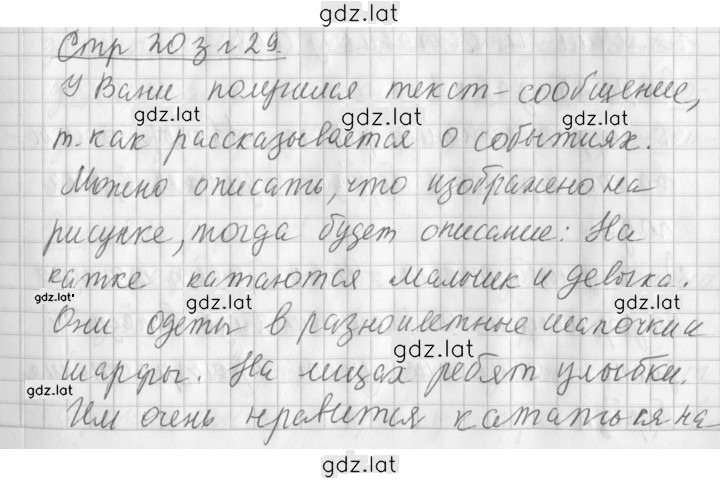 gdz.lat
Стр 20 з г 29.
У Вани получился текст-сообщение,
gdz.lat gdz.lat gdz.lat
т. как рассказывается о событиях.
Можно описать, что изображено на
gdz.lat gdz.lat
рисунке, тогда будет описание: На
катке катаются мальчик и девочка.
gdz.lat gdz.lat gdz.lat
Они одеты в разноцветные шапочки и
gdz.lat
шарфы. На лицах ребят улыбки.
gdz.lat gdz.lat
Им очень нравится кататься на
gdz.lat